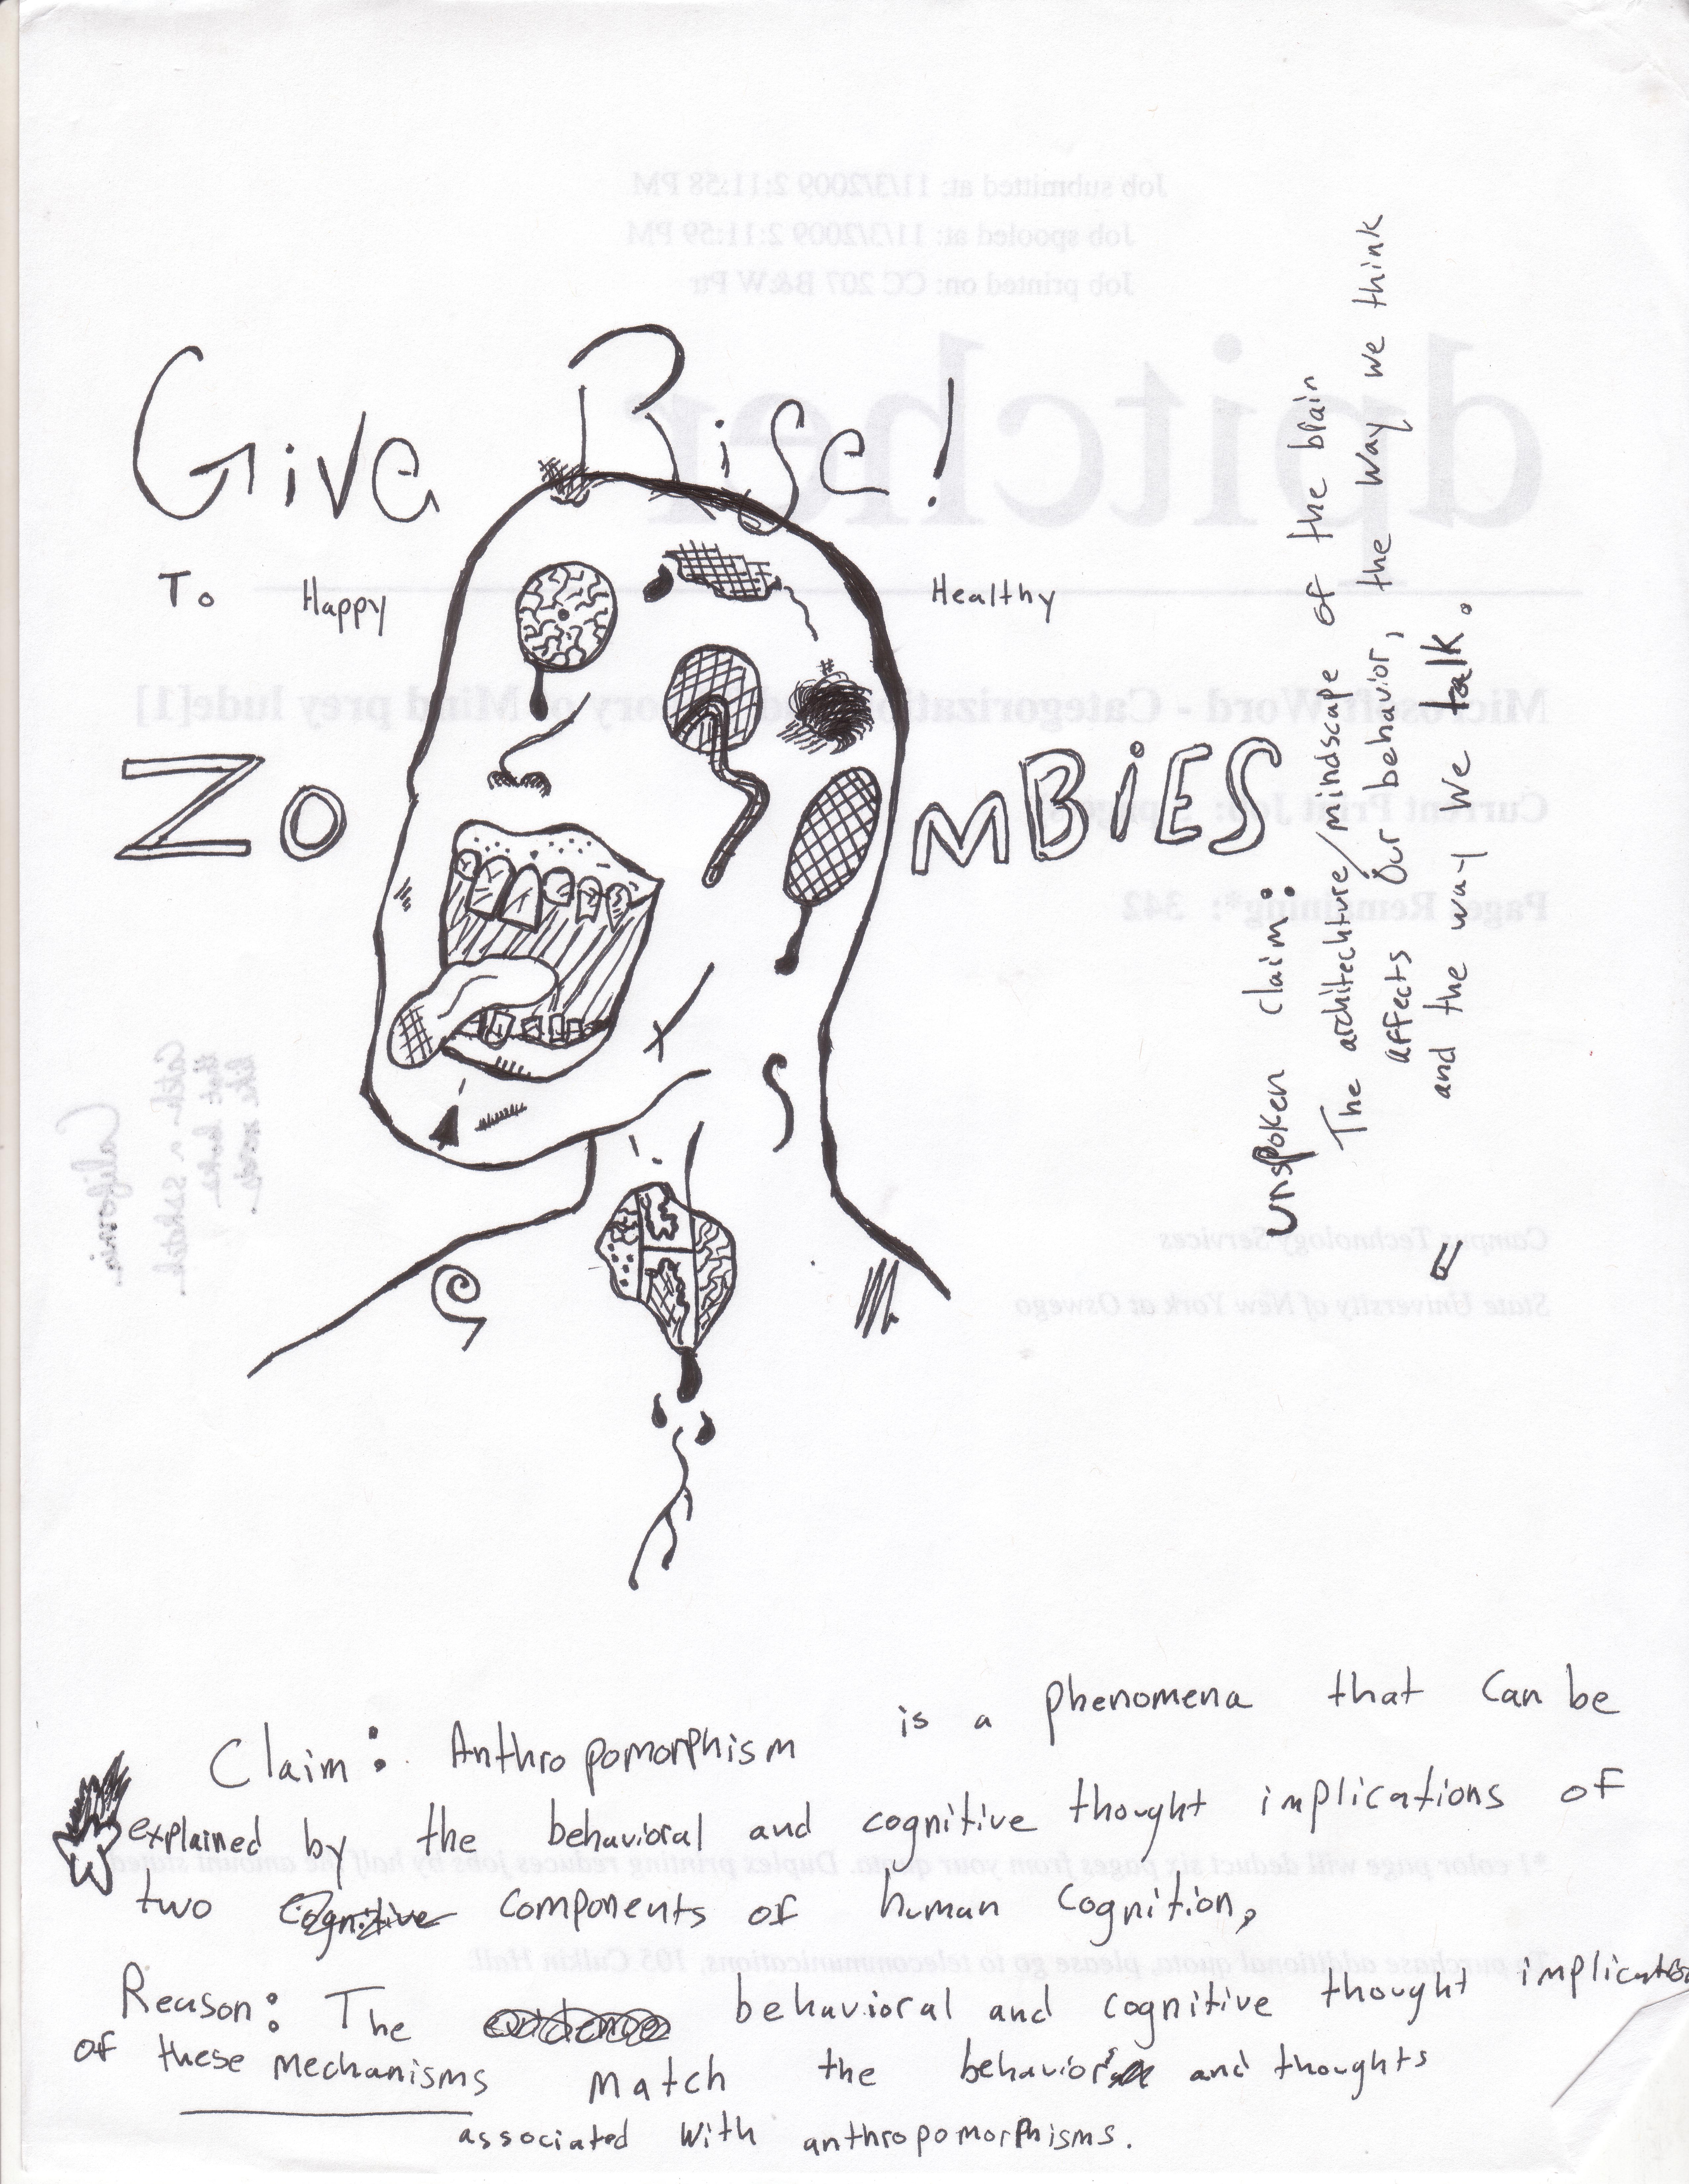 Job submitted at: 11/3/2009 2:11:58 PM
Job spooled at: 11/3/2009 2:11:59 PM
Job printed on: CC 207 B&W Ptr
dpitcher
Give Rise!
To Happy Healthy
ZOMBiES
Microsoft Word - Categorization and Theory of Mind prey lude[1]
Current Print Job: pages
Pages Remaining*: 342
unspoken claim:
The architechture/mindscape of the brain
affects Our behavior, the way we think
and the way we talk.
California
catch a
that
like
Campus Technology Services
State University of New York at Oswego
Claim: Anthropomorphism is a phenomena that can be
explained by the behavioral and cognitive thought implications of
two Cognitive components of human cognition,
*1 color page will deduct six pages from your quota. Duplex printing reduces jobs by half the amount stated.
To purchase additional quota, please go to telecommunications, 105 Culkin Hall.
Reason: The behavioral and cognitive thought implications
of these mechanisms match the behaviors and thoughts
associated with anthropomorphisms.